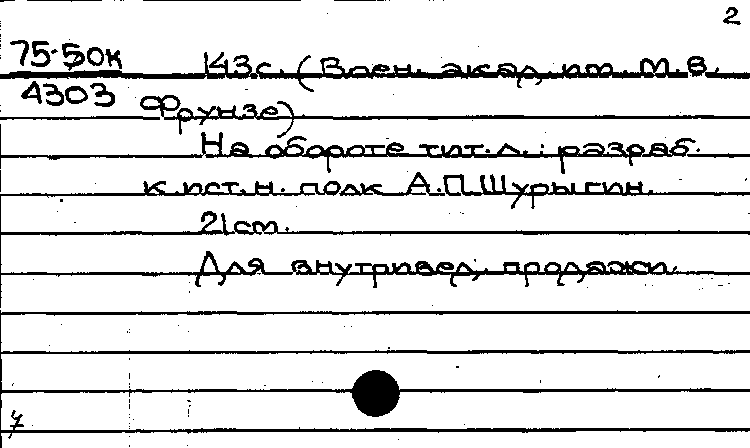 2
75-50к 143с. (Воен. акад. им. М.В.
4303 Фрунзе)
На обороте тит. л.: разраб.
к.ист.н. полк А.П.Шурыгин.
21cm.
Для внутривед. продажи.